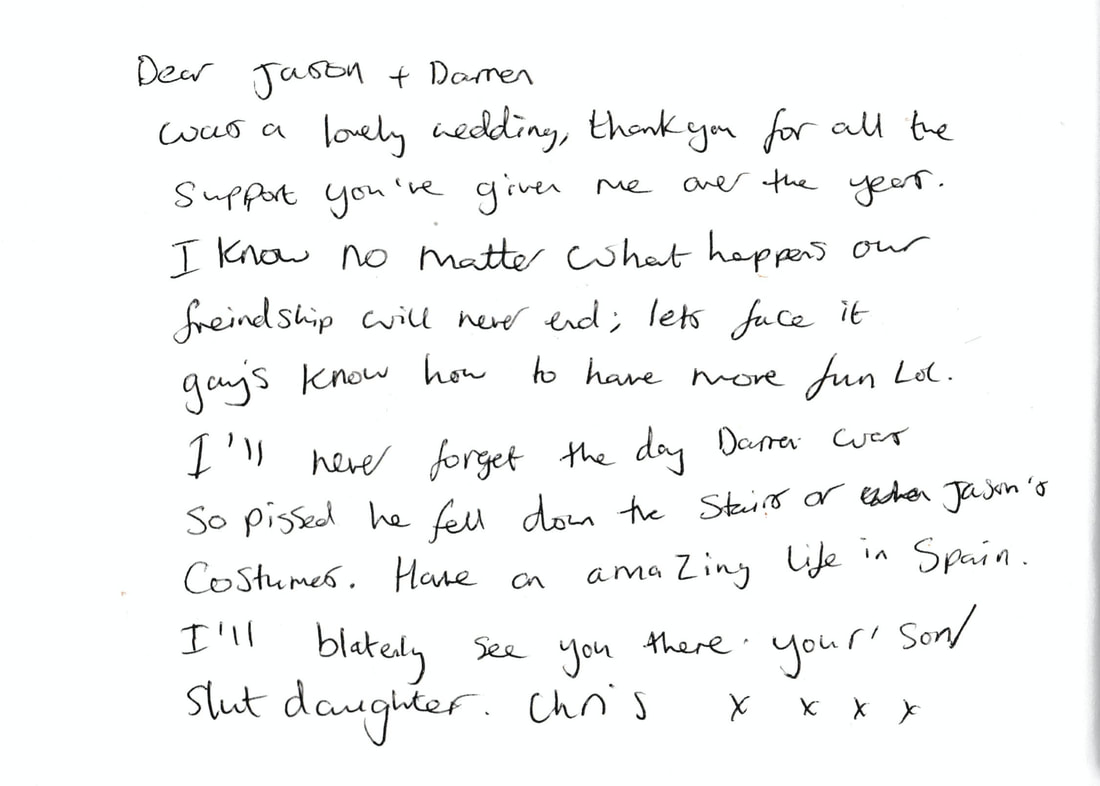 Dear Jason + Darren
was a lovely wedding, thank you for all the
support you've given me over the years.
I know no matter what happens our
freindship will never end; lets face it
gay's know how to have more fun Lol.
I'll never forget the day Darren was
so pissed he fell down the stairs or Jason's
Costumes. Have an amazing life in Spain.
I'll blatenly see you there. your' son/
slut daughter. Chris x x x x